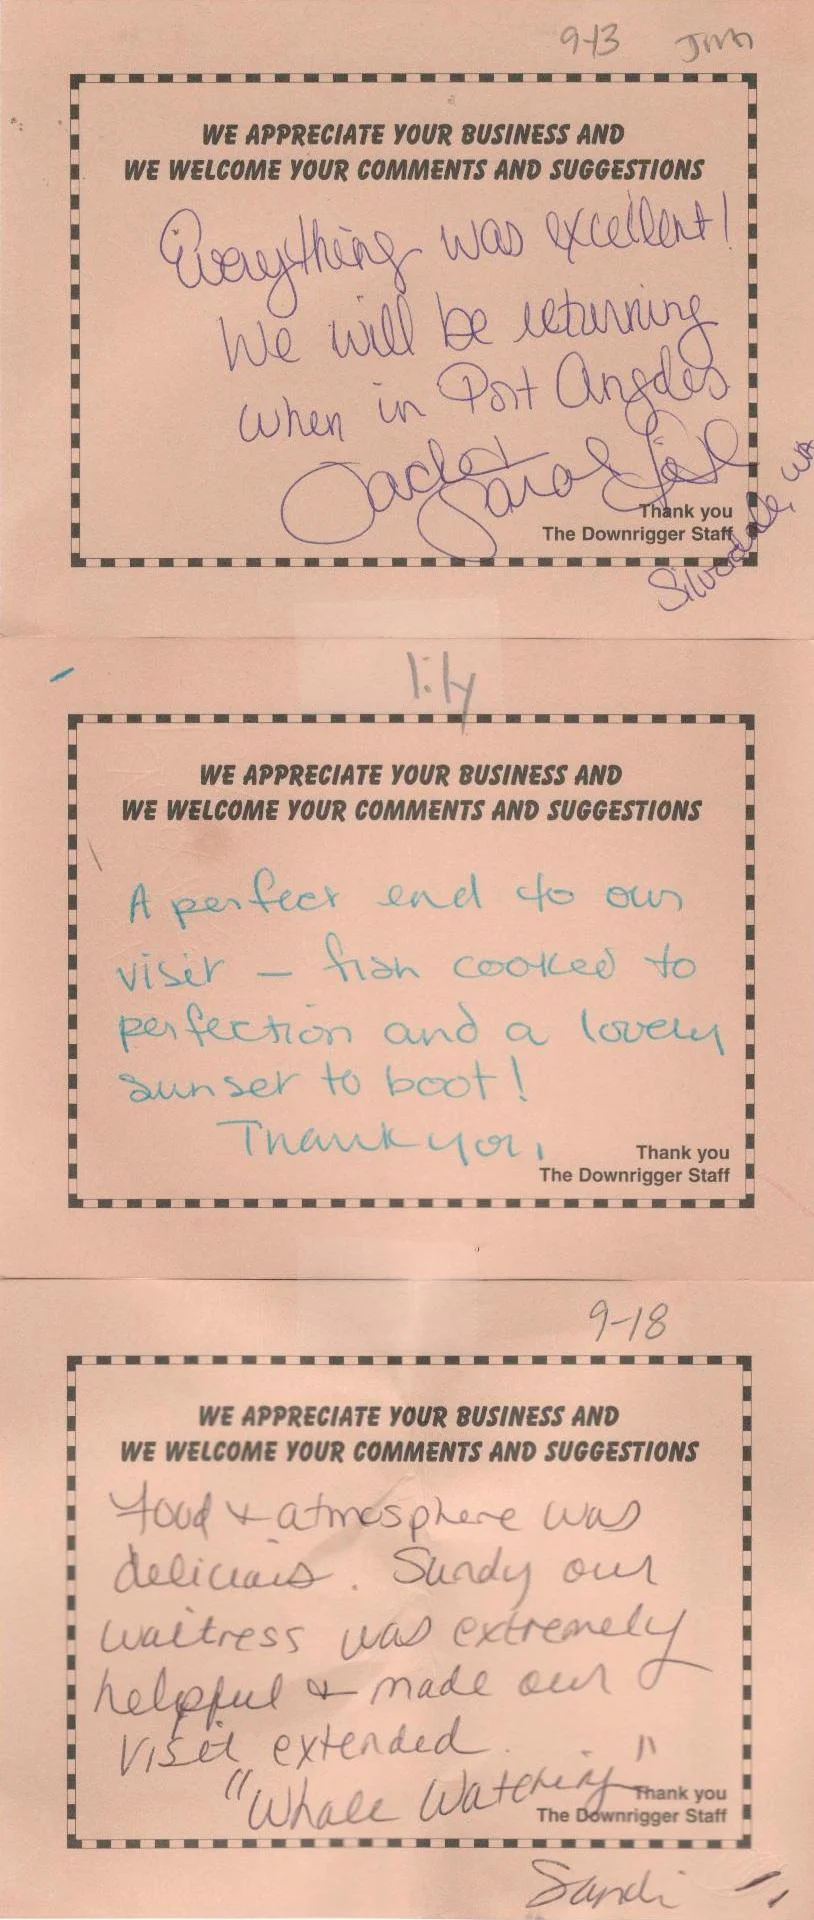 9-13 Jim
WE APPRECIATE YOUR BUSINESS AND
WE WELCOME YOUR COMMENTS AND SUGGESTIONS
Everything was excellent!
We will be returning
when in Port Angeles
Sarah
Silverdale, WA
Thank you
The Downrigger Staff
lily
WE APPRECIATE YOUR BUSINESS AND
WE WELCOME YOUR COMMENTS AND SUGGESTIONS
A perfect end to our
visit – fish cooked to
perfection and a lovely
sunset to boot!
Thank you,
Thank you
The Downrigger Staff
9-18
WE APPRECIATE YOUR BUSINESS AND
WE WELCOME YOUR COMMENTS AND SUGGESTIONS
Food & atmosphere was
delicious. Sandy our
waitress was extremely
helpful & made our
visit extended.
"Whale Watching"
Thank you
The Downrigger Staff
Sandi